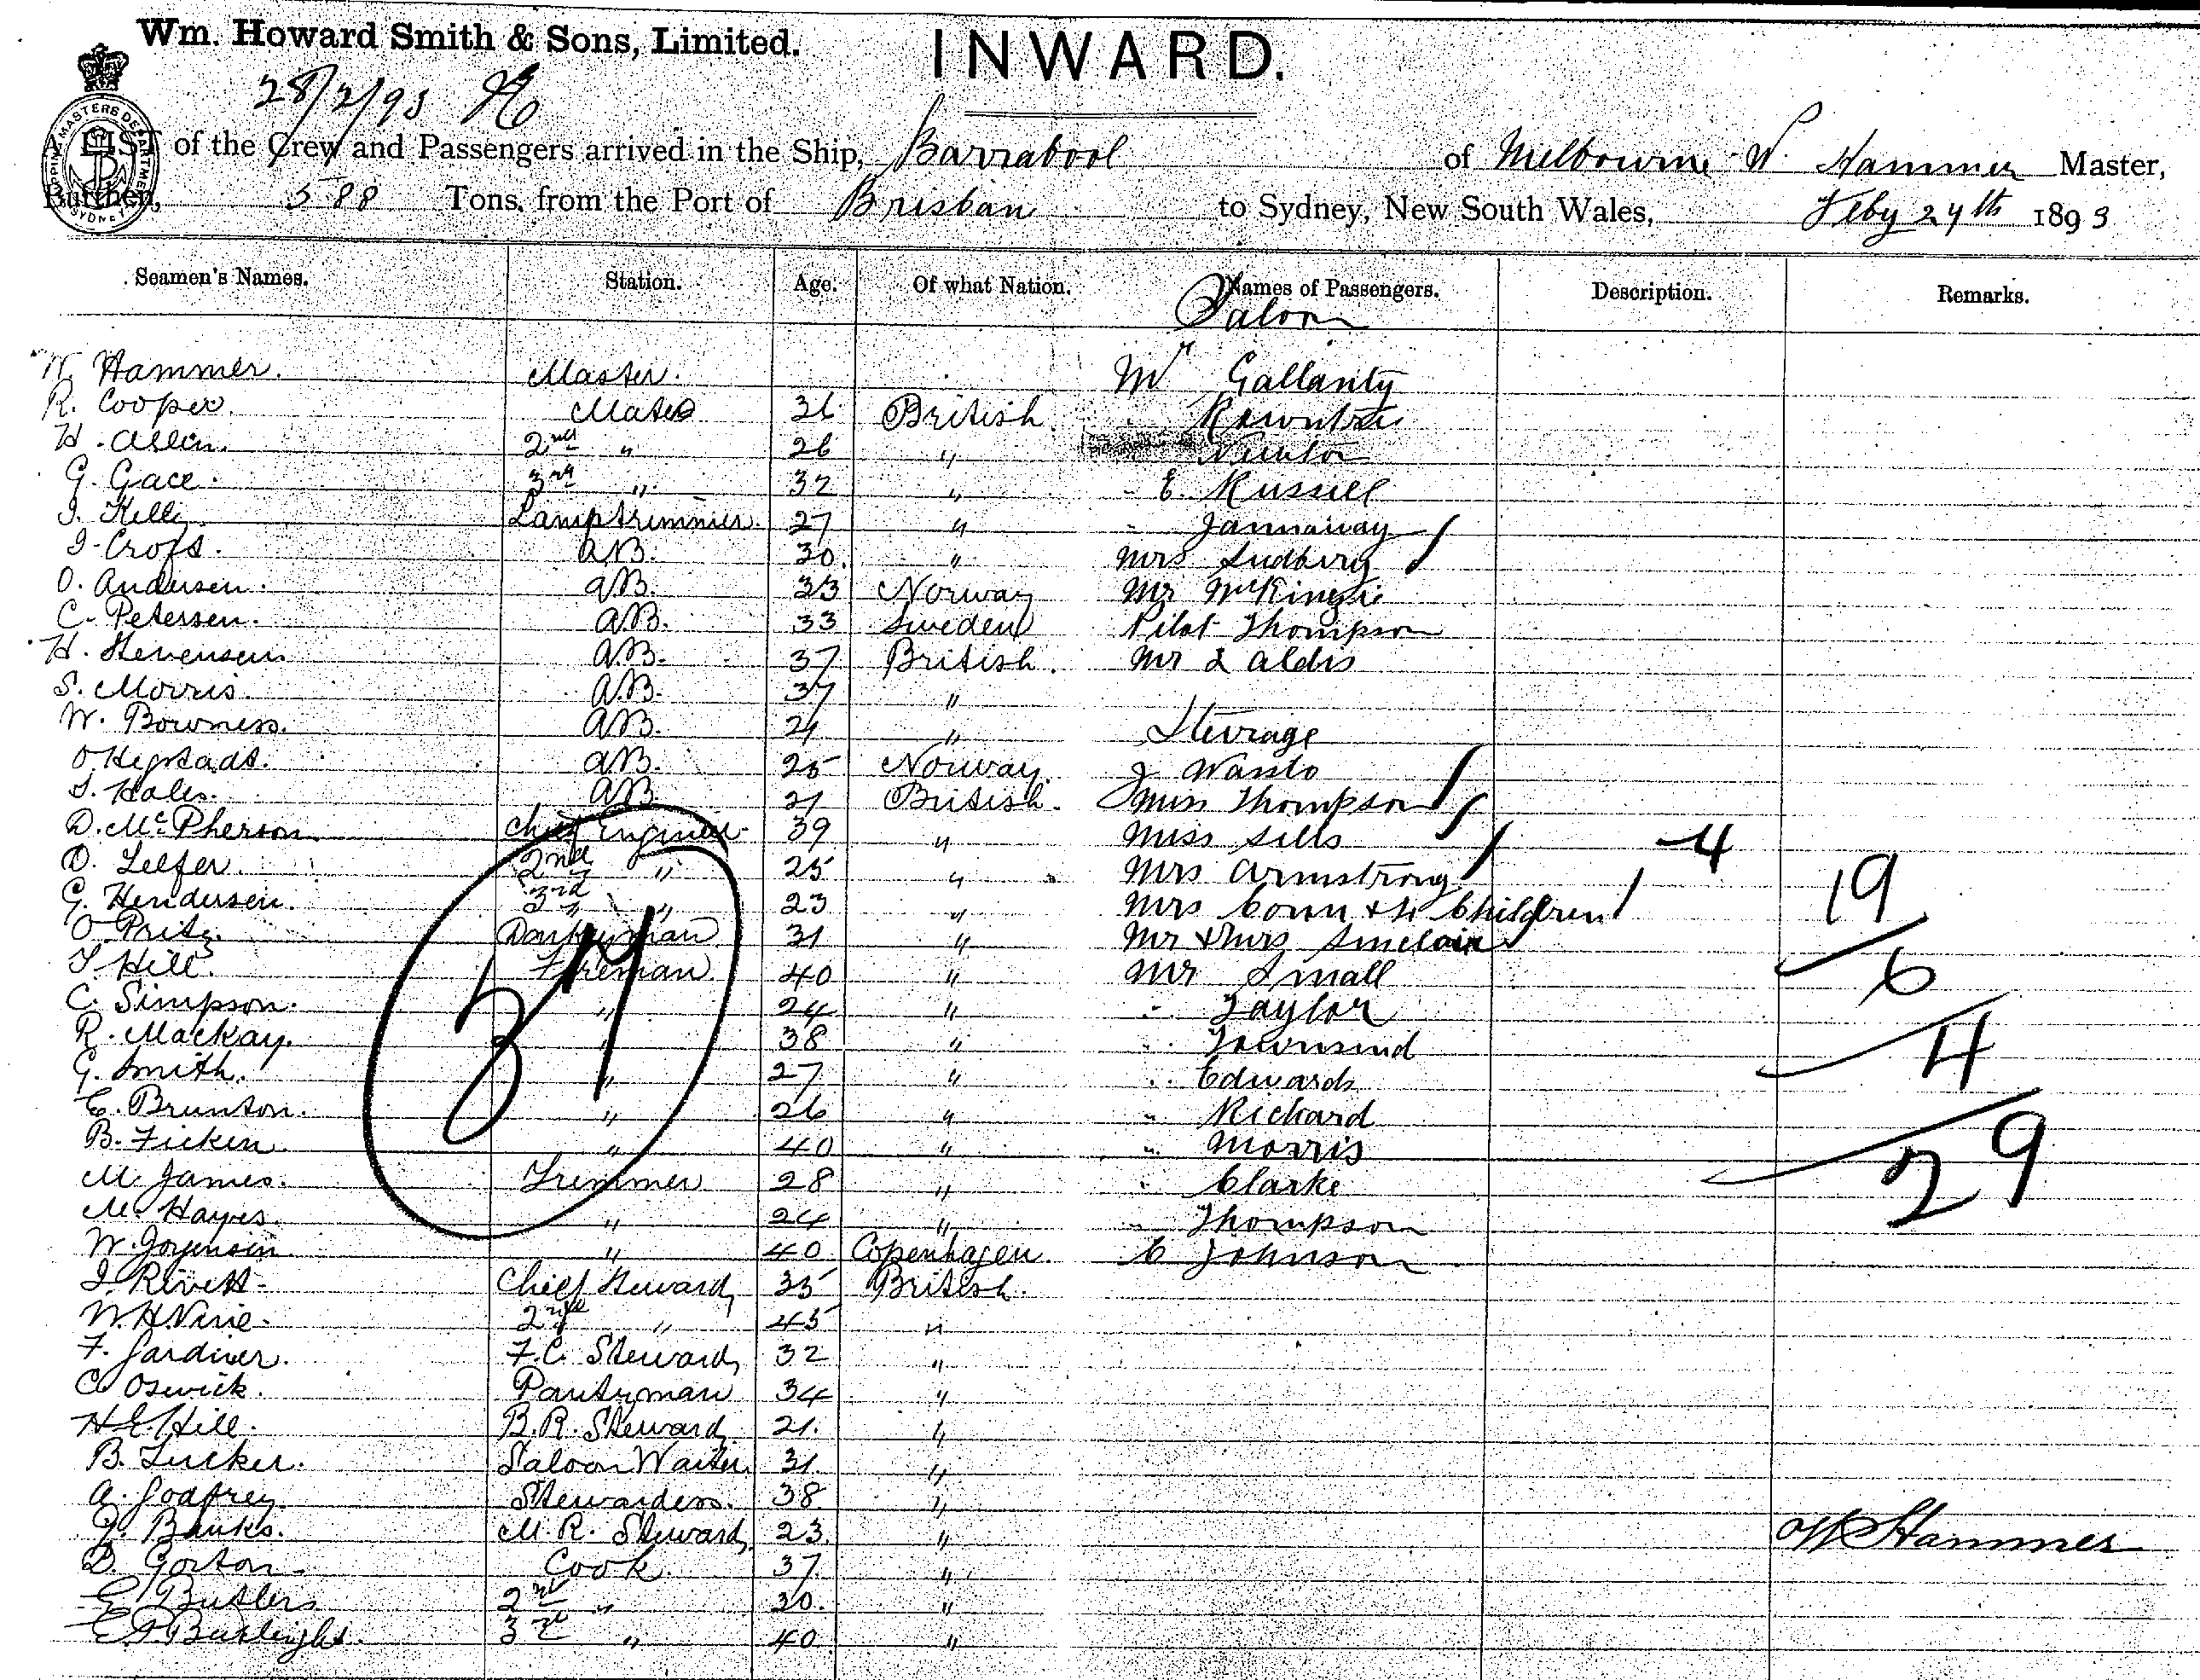 Wm. Howard Smith & Sons, Limited.
INWARD.
28/2/93
A LIST of the Crew and Passengers arrived in the Ship, Barrabool of Melbourne W. Hammer Master,
Burthen, 588 Tons, from the Port of Brisban to Sydney, New South Wales, Feby 24th 1893
Seamen's Names. Station. Age. Of what Nation. Names of Passengers. Description. Remarks.
Saloon
W. Hammer. Master. Mr Gallanty
R. Cooper. Mate 36 British
H. Allen. 2nd " 26 "
G. Gace. 3rd " 32 " " E. Russell
J. Kelly. Lamptrimmer. 27 " " Jannaway
J. Croft. A.B. 30. " Mrs Sudbury
O. Andersen. A.B. 33 Norway Mr McKinzie
C. Petersen. A.B. 33 Sweden Pilot Thompson
H. Stevensen A.B. 37 British. Mr & Aldis
S. Morris. A.B. 37 "
W. Bowness. A.B. 24 " Stevrage
A.B. 25 Norway. J Wanto
Hales. A.B. 21 British. Miss Thompson
D. McPherson. Chief Engineer 39 " Miss Sills
D. Leefer. 2nd " 25 " Mrs Armstrong 4
G. Hendersen. 3rd " 23 " Mrs Conn & 4 Children 19
O. Pritz. Donkeyman 31 " Mr & Mrs Sinclair
T. Hill. Fireman 40 " Mr Small 6
C. Simpson. " 24 " " Taylor
R. Mackay. " 38 " " Townsend 4
G. Smith. " 27 " " Edwards
E. Brunton. " 26 " " Rickard
B. Ficken. " 40 " " Morris 29
M. James. Trimmer 28 " " Clarke
M. Hayes. " 24 " " Thompson
W. Jorgensen " 40 Copenhagen. C Johnson
37
J. Rivett Chief Steward 35 British.
W. H. Vine. 2nd " 45 "
F. Gardiner. F.C. Steward, 32 "
C. Oswick. Pantryman 34 "
H. E. Hill. B.R. Steward 21. "
B. Tucker. Saloon Waiter. 31. "
A. Godfrey. Stewardess. 38 "
Banks. M.R. Steward, 23. " W Hammer
D. Gorton. Cook 37. "
E. Butlers 2nd " 30. "
3rd " 40 "